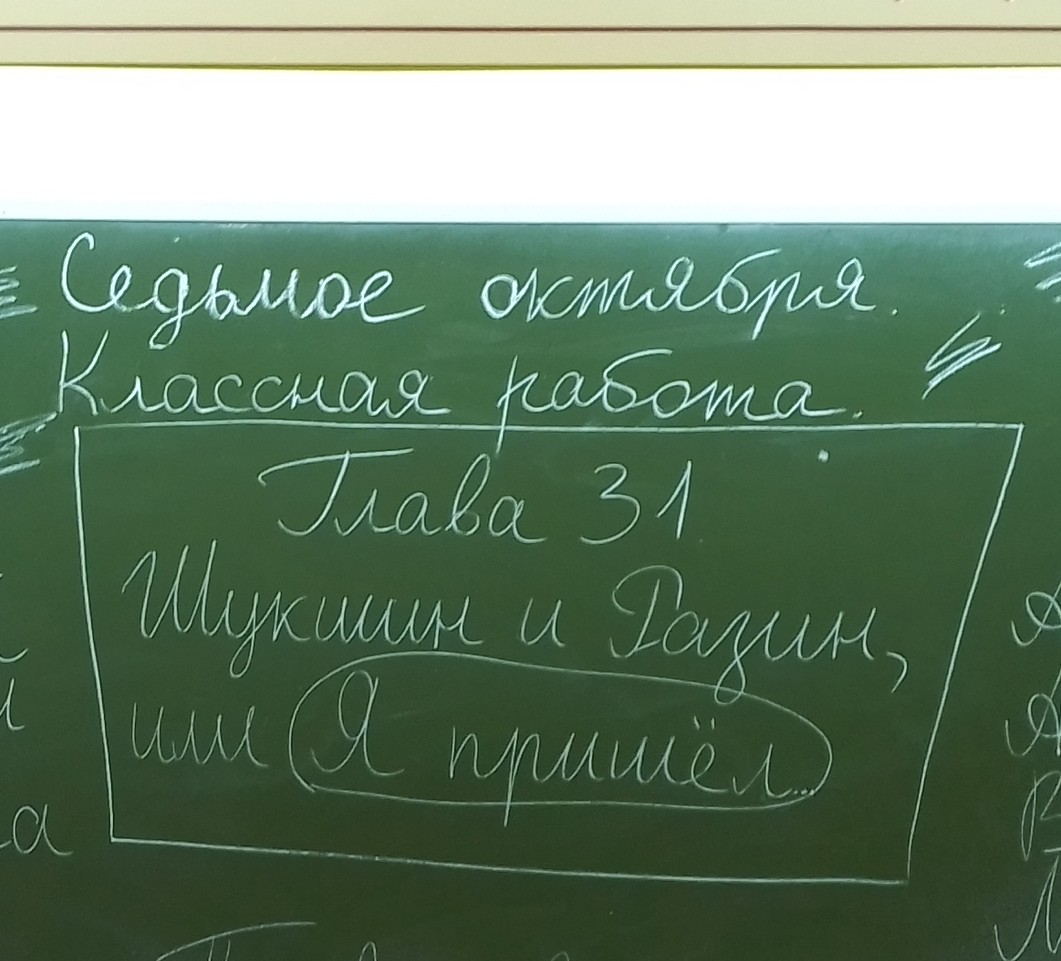 Седьмое октября.
Классная работа.
Глава 31
Шукшин и Разин,
или Я пришёл...